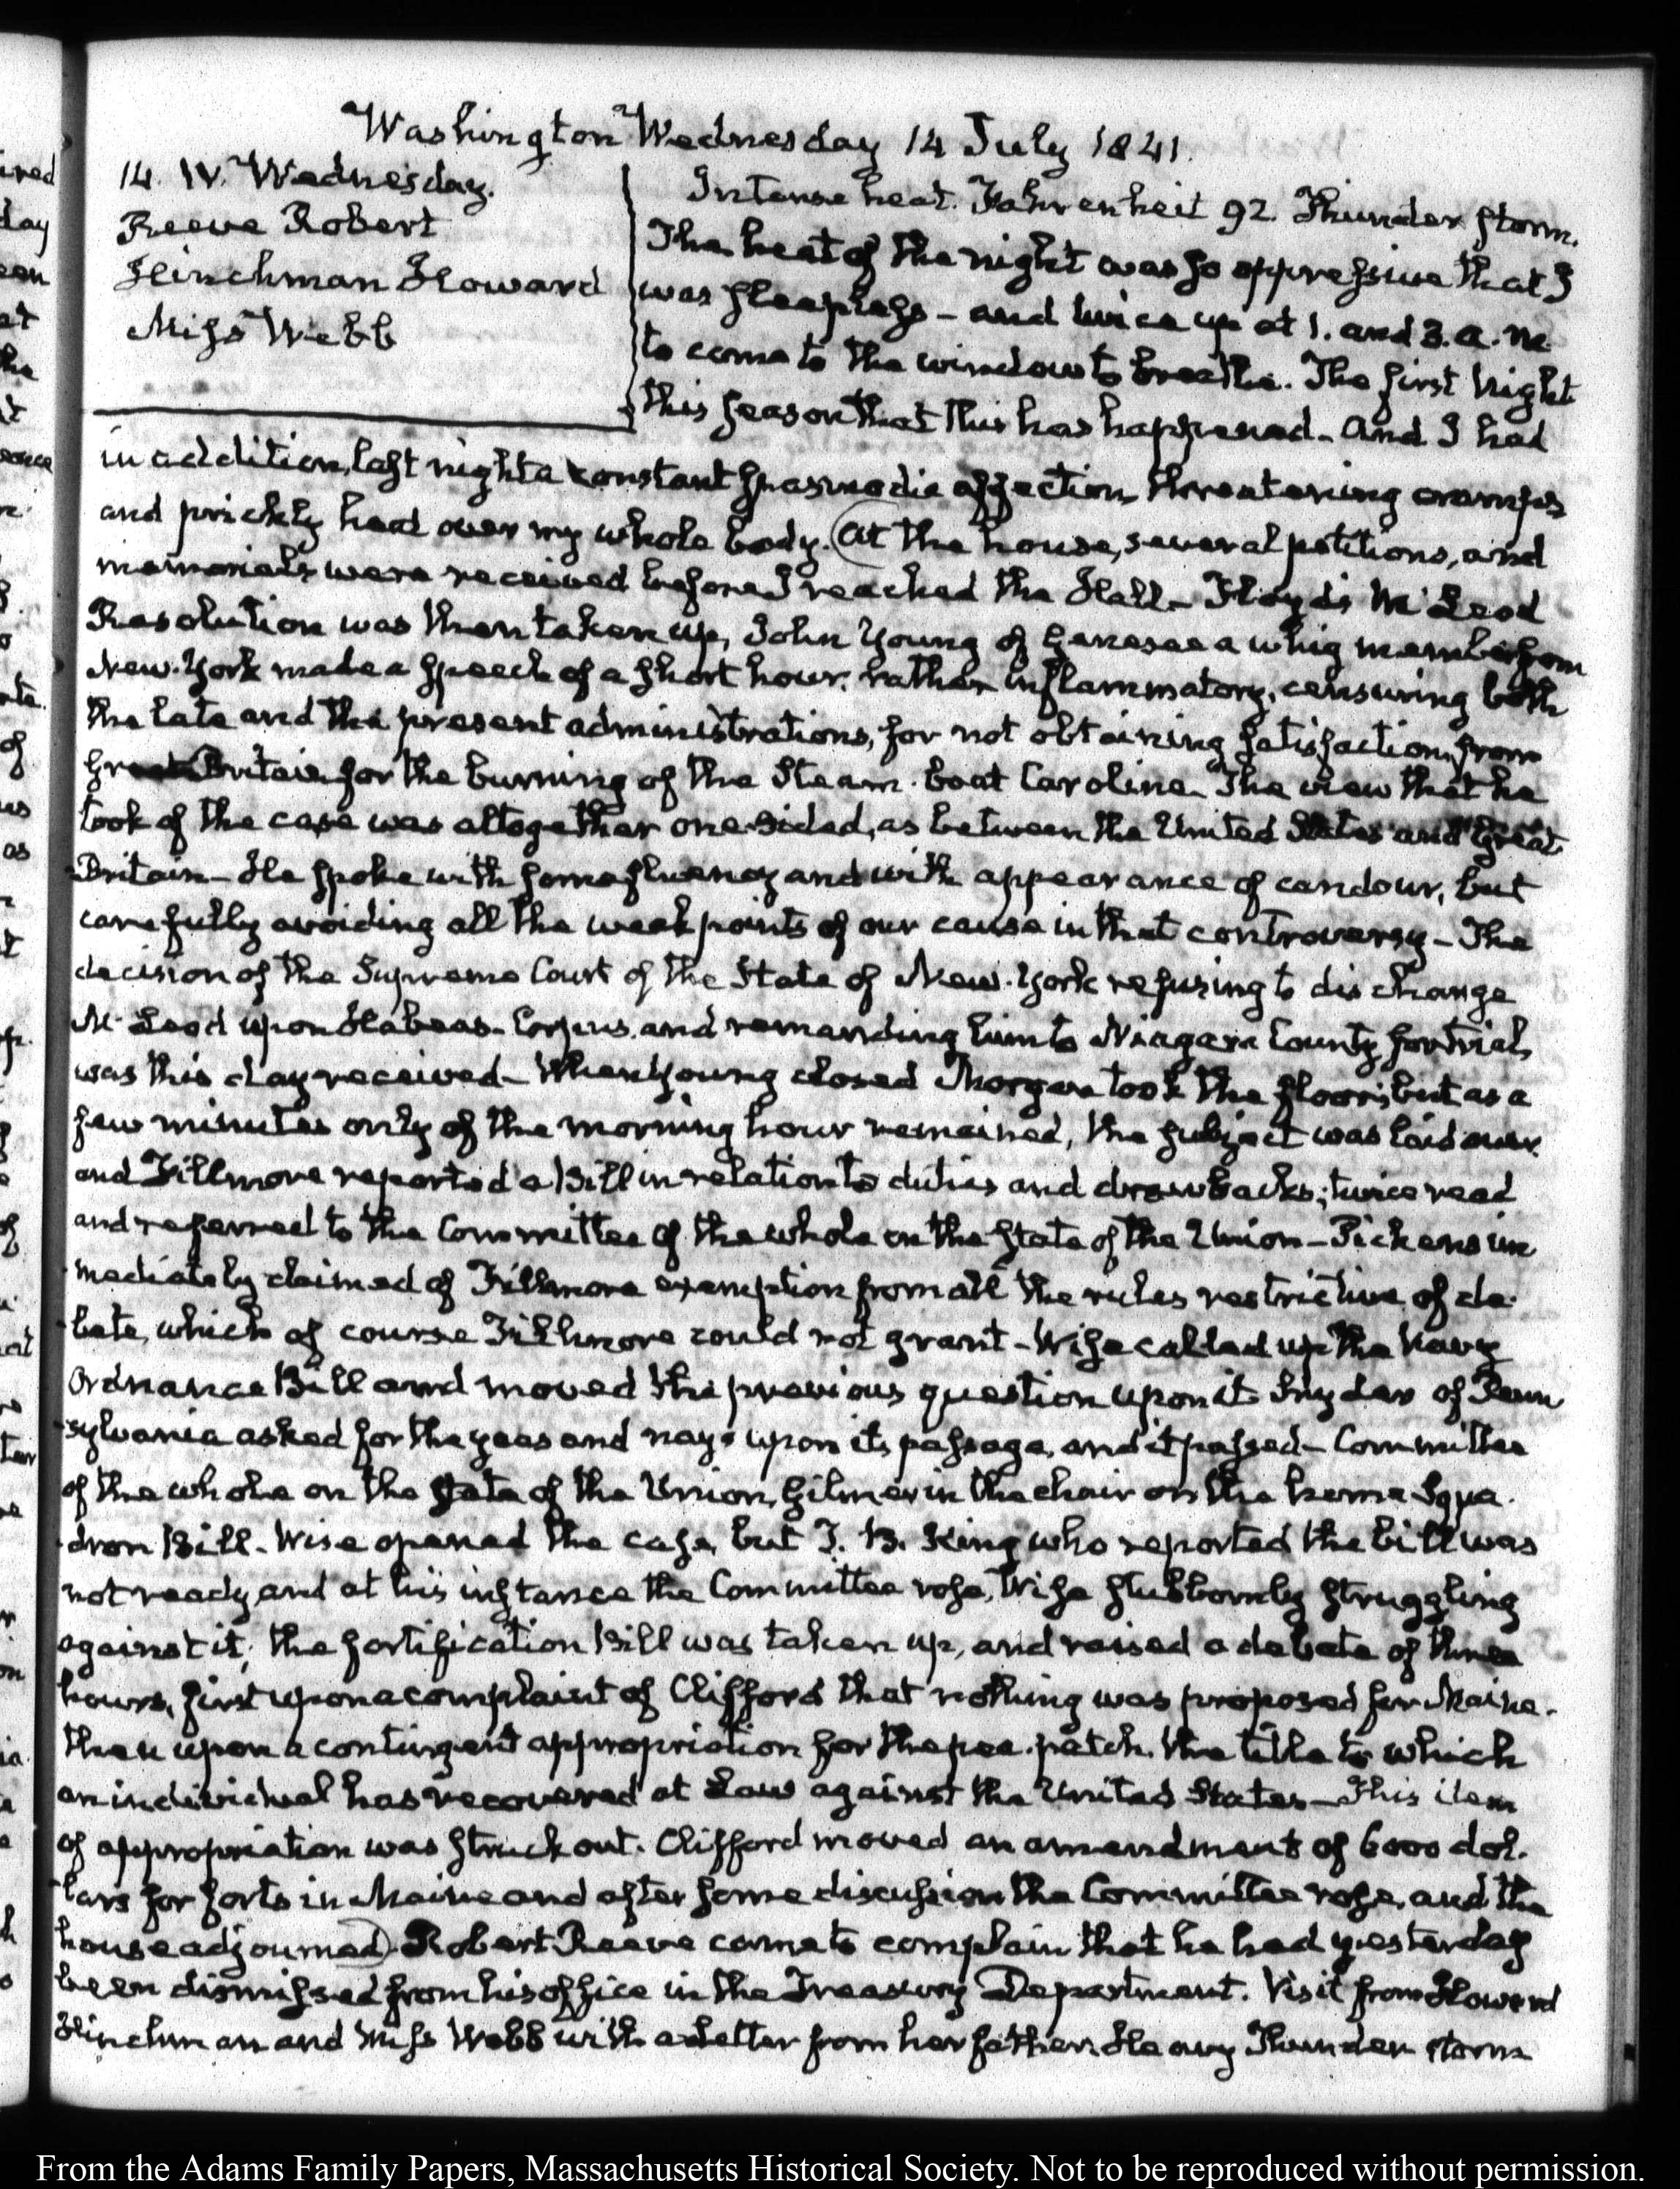 Washington Wednesday 14 July 1841.
14. IV. Wednesday.
Reeve Robert
Hinchman Howard
Miss Webb
Intense heat. Fahrenheit 92. Thunder storm.
The heat of the night was so oppressive that I
was sleepless – and twice up at 1. and 3. a.m.
to come to the window to breathe. The first Night
this season that this has happened – And I had
in addition, last night a constant spasmodic affection, threatening cramps
and prickly heat over my whole body. At the house, several petitions, and
memorials were received before I reached the Hall – Floyd's McLeod
Resolution was then taken up, John Young of Genesee a whig member from
New-York made a speech of a short hour, rather inflammatory, censuring both
the late and the present administrations, for not obtaining satisfaction from
Great Britain for the burning of the Steam-boat Caroline – The view that he
took of the case was altogether one-sided, as between the United States and Great
Britain – He spoke with some fluency and with appearance of candour, but
carefully avoiding all the weak points of our cause in that controversy – The
decision of the Supreme Court of the State of New-York refusing to discharge
McLeod upon Habeas-Corpus and remanding him to Niagara County for trial,
was this day received – When Young closed Morgan took the floor; but as a
few minutes only of the morning hour remained, the subject was laid over
and Fillmore reported a Bill in relation to duties and drawbacks; twice read
and referred to the Committee of the whole on the state of the Union – Pickens im
mediately claimed of Fillmore exemption from all the rules restrictive of de-
bate, which of course Fillmore could not grant – Wise called up the Navy
Ordnance Bill and moved the previous question upon it Snyder of Penn
sylvania asked for the yeas and nays upon its passage, and it passed – Committee
of the whole on the State of the Union, Gilmer in the chair on the home Squa-
dron Bill – Wise opened the case, but T. B. King who reported the bill was
not ready and at his instance the Committee rose, Wise stubbornly struggling
against it; the fortification Bill was taken up, and raised a debate of three
hours, first upon a complaint of Clifford that nothing was proposed for Maine –
then upon a contingent appropriation for the pea-patch, the title to which
an individual has recovered at Law against the United States – This item
of appropriation was struck out. Clifford moved an amendment of 6000 dol-
lars for forts in Maine and after some discussion the Committee rose, and the
house adjourned. Robert Reeve came to complain that he had yesterday
been dismissed from his office in the Treasury Department. Visit from Howard
Hinchman and Miss Webb with a letter from her father. Heavy Thunder storm
From the Adams Family Papers, Massachusetts Historical Society. Not to be reproduced without permission.